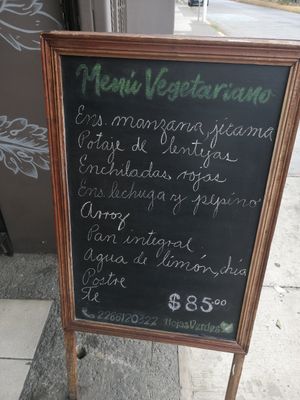 Menú Vegetariano
Ens. manzana, jícama
Potaje de lentejas
Enchiladas rojas
Ens. lechuga y pepino
Arroz
Pan integral
Agua de limón, chía
Postre
Te
$85.00
2288120222 HojasVerdes